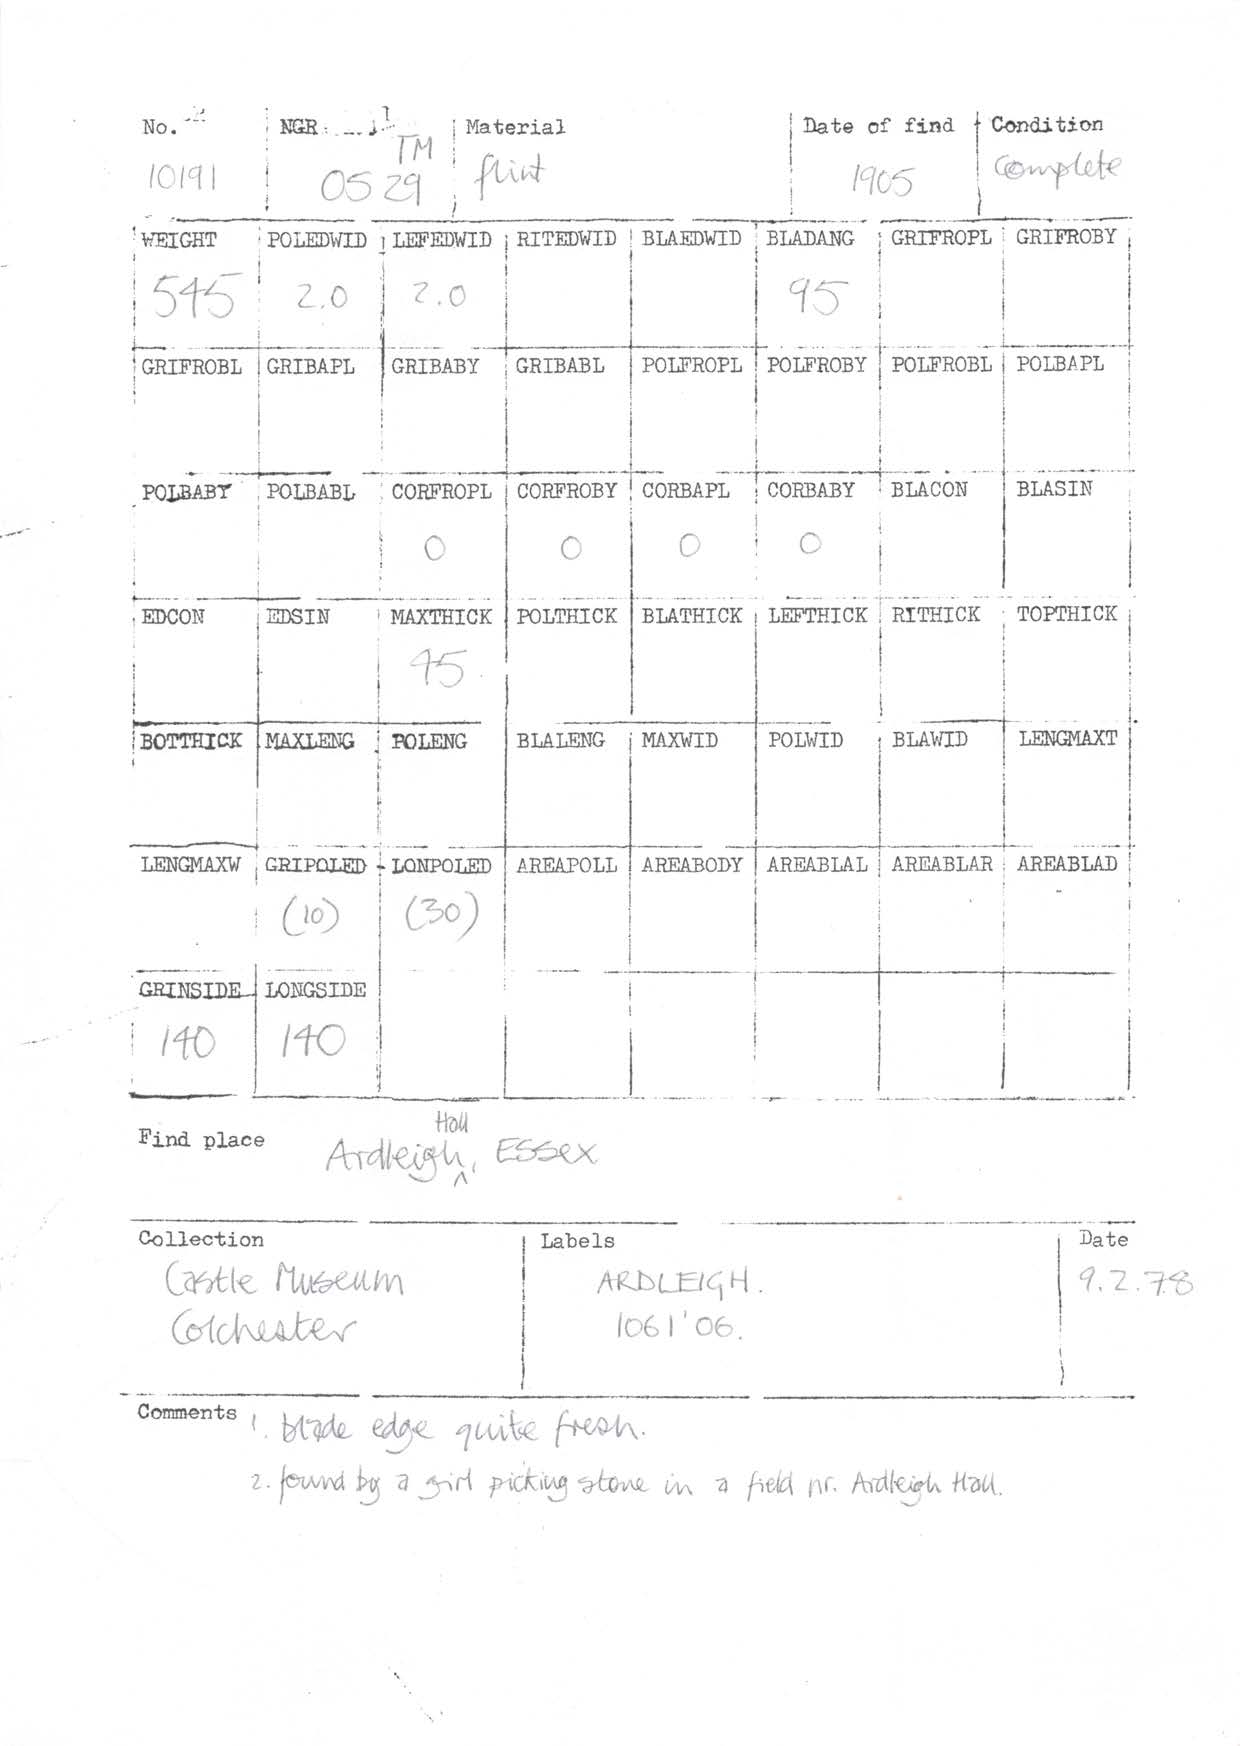 No. NGR Material Date of find Condition
10191 TM 0529 flint 1905 Complete
WEIGHT POLEDWID LEFEDWID RITEDWID BLAEDWID BLADANG GRIFROPL GRIFROBY
545 2.0 2.0 95
GRIFROBL GRIBAPL GRIBABY GRIBABL POLFROPL POLFROBY POLFROBL POLBAPL
POLBABY POLBABL CORFROPL CORFROBY CORBAPL CORBABY BLACON BLASIN
0 0 0 0
EDCON EDSIN MAXTHICK POLTHICK BLATHICK LEFTHICK RITHICK TOPTHICK
45
BOTTHICK MAXLENG POLENG BLALENG MAXWID POLWID BLAWID LENGMAXT
LENGMAXW GRIPOLED LONPOLED AREAPOLL AREABODY AREABLAL AREABLAR AREABLAD
(10) (30)
GRINSIDE LONGSIDE
140 140
Find place Ardleigh Hall, Essex
Collection Labels Date
Castle Museum ARDLEIGH. 9.2.78
Colchester 1061'06.
Comments 1. blade edge quite fresh.
2. found by a girl picking stone in a field nr. Ardleigh Hall.